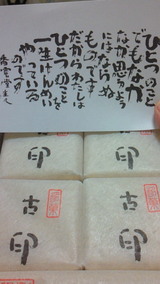 ひとつのこと
でもなか
なか思うよう
にはならぬ
ものです
だからわたしは
ひとつのことを
一生けんめい
やっている
のです
香雲堂主人
古印
古印
古印
古印